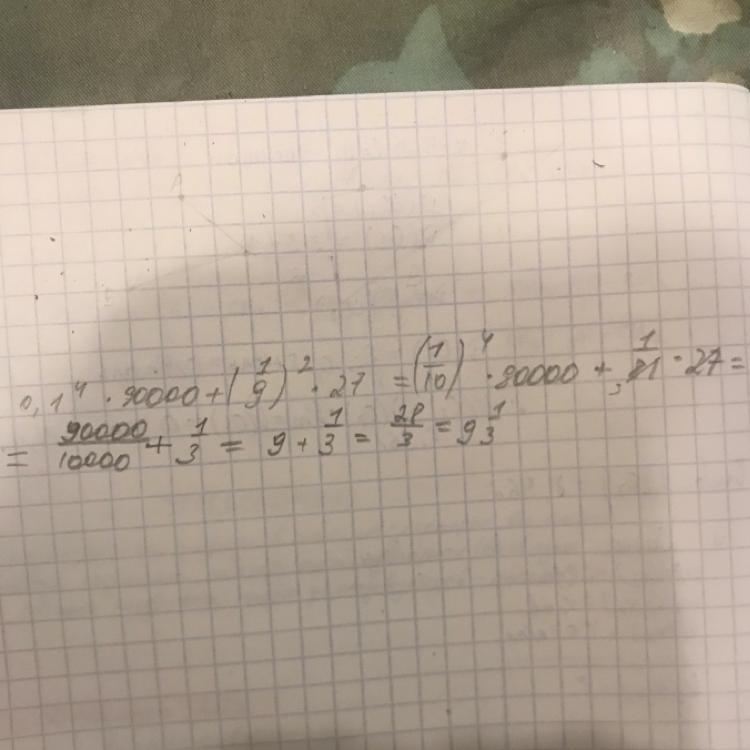 0,1⁴ · 90000 + (1/9)² · 27 = (1/10)⁴ · 90000 + 1/81 · 27 =
= 90000/10000 + 1/3 = 9 + 1/3 = 28/3 = 9 1/3